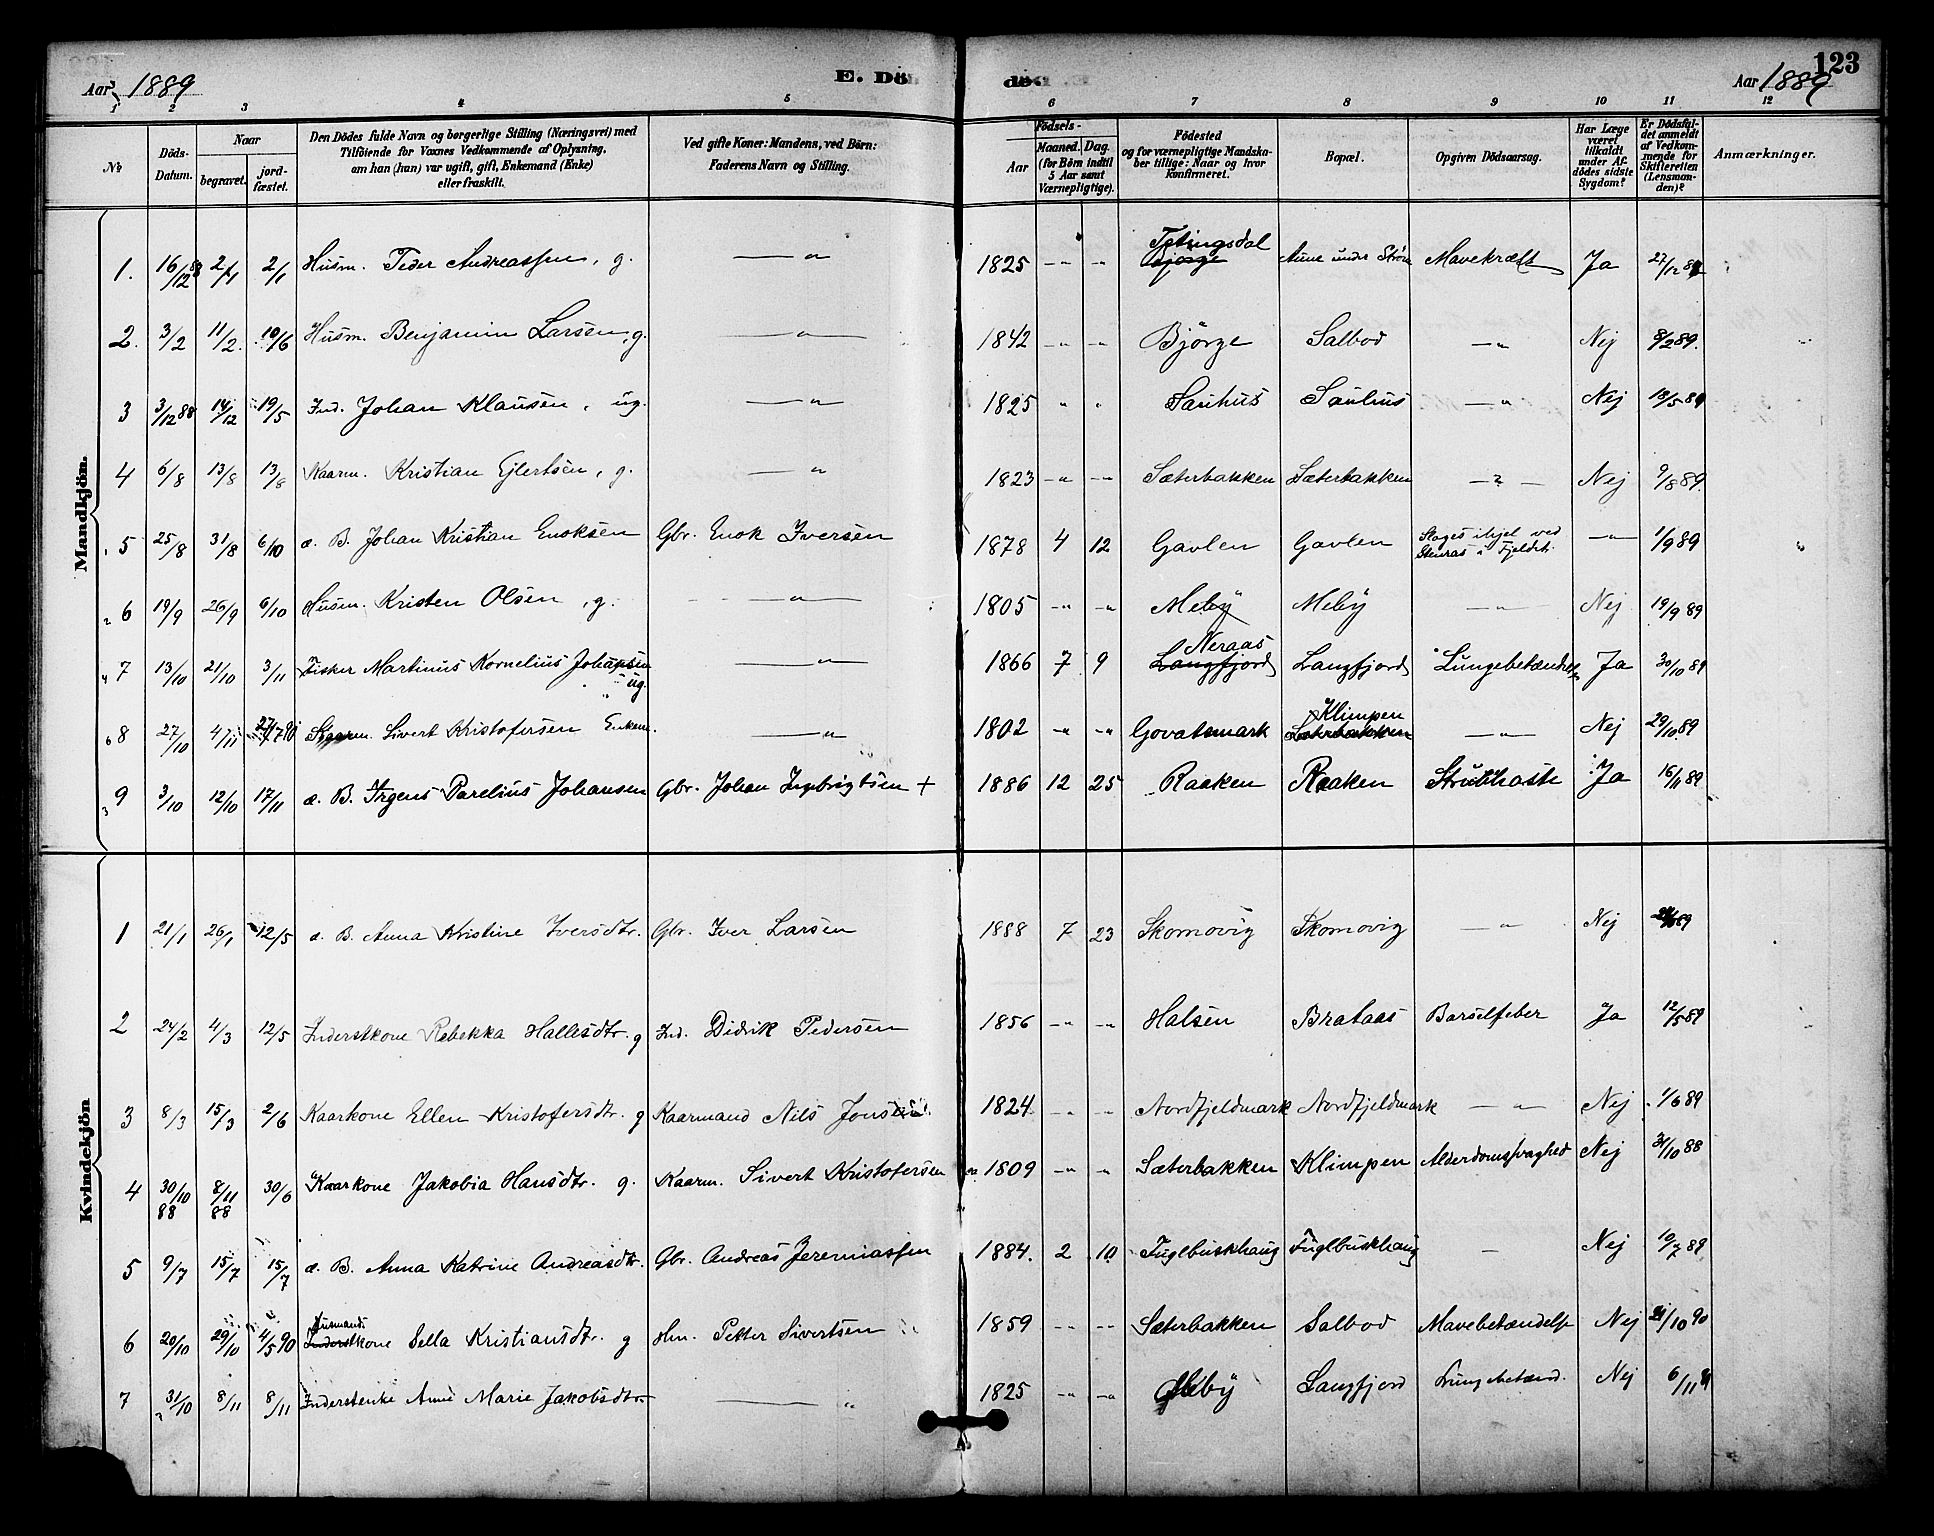 123
Aar 1889
E. Dö
død
Aar 1889
1 2 3 4 5 6 7 8 9 10 11 12
No
Döds-Datum.
Naar
begravet.
jord-fæstet.
Den Dödes fulde Navn og borgerlige Stilling (Næringsvei) med
Tilföiende for Voxnes Vedkommende af Oplysning,
om han (hun) var ugift, gift, Enkemand (Enke)
eller fraskilt.
Ved gifte Koner: Mandens, ved Börn:
Faderens Navn og Stilling.
Födsels-
Aar
Maaned. Dag.
(for Börn indtil
5 Aar samt
Værnepligtige).
Födested
og for værnepligtige Mandska-
ber tillige: Naar og hvor
Konfirmeret.
Bopæl.
Opgiven Dödsaarsag.
Har Læge
været
tilkaldt
under Af-
dödes sidste
Sygdom?
Er Dödsfal-
det anmeldt
af Vedkom-
mende for
Skifteretten
(Lensman-
den)?
Anmærkninger.
Mandkjön.
1. 16/12 88 2/1 2/1 Husm. Peder Andreassen, g. — " — 1825 -"- " Tptingsdal Bjørge Aune under Strøm Mavekræft Ja 27/12 88
2. 3/2 11/2 10/6 Husm. Benjamin Larsen, g. — " — 1842 -"- -"- Bjørge Salbod — " Nej 8/2 89.
3 3/12 88 14/12 19/5 Ind. Johan Klausen, ug. — " — 1825 " " Sauhus Sauhus — " — Nej 18/5 89
4 6/8 13/8 13/8 Kaarm. Kristian Ejlertsen, g. — " 1823 -"- -"- Sæterbakken Sæterbakken — ? — Nej 9/8 89.
5 25/8 31/8 6/10 æ. B. Johan Kristian Enoksen Gbr. Enok Iversen 1878 4 12 Gavlen Gavlen Slages ihjel ved Stenras i Fjeldet. — " — 1/9 89
6 19/9 26/9 6/10 Husm. Kristen Olsen, g. — " — 1805 -"- -"- Meby Meby — " — Nej 19/9 89
7 13/10 21/10 3/11 Fisker Martinus Kornelius Johansen ug. — " — 1866 7 9 Neraas Langfjord Langfjord Lungebetændelse Ja 30/10 89
8 27/10 4/11 27/7 90 Kaarm. Sivert Kristofersen Enkem. — " 1802 -"- -"- Govatsmark Klimpen Sæterbakken — " — Nej 29/10 89
9 3/10 12/10 17/11 æ. B. Jrgens Parelius Johansen Gbr. Johan Ingebrigtsen + 1886 12 25 Raaken Raaken Strubhoste Ja 16/11 89
Kvindekjön
1 21/1 26/1 12/5 æ. B. Anna Kristine Iversdtr. Gbr. Iver Larsen 1888 7 23 Skomovig Skomovig — " — Nej 89
2 24/2 4/3 12/5 Inderstkone Rebekka Hallesdtr. g Ind. Didrik Pedersen 1856 -"- -"- Halsen Brataas Barselfeber Ja 12/5 89
3 8/3 15/3 2/6 Kaarkone Ellen Kristofersdtr. g Kaarmand Nils Jonsen 1824 -"- -"- Nordfjeldmark Nordfjeldmark — " — Nej 1/6 89
4 30/10 88 8/11 88 30/6 Kaarkone Jakobia Hansdtr. g. Kaarm. Sivert Kristofersen 1809 -"- " Sæterbakken Klimpen Alderdomssvaghed Nej 31/10 88
5 9/7 15/7 15/7 æ. B. Anna Katrine Andreasdtr. Gbr. Andreas Jeremiassen 1884. 2 10 Fuglbuskhaug Fuglbuskhaug — Nej 10/7 89
6 20/10 29/10 4/5 90 Husmands Inderstkone Sella Kristiansdtr. g Hm. Petter Sivertsen 1859 -"- -"- Sæterbakken Salbod Mavebetændelse Nej 21/10 90
7 31/10 8/11 8/11 Inderstenke Anne Marie Jakobsdtr — " 1825 -"- -"- Meby Langfjord Lungebetænd. Nej 6/11